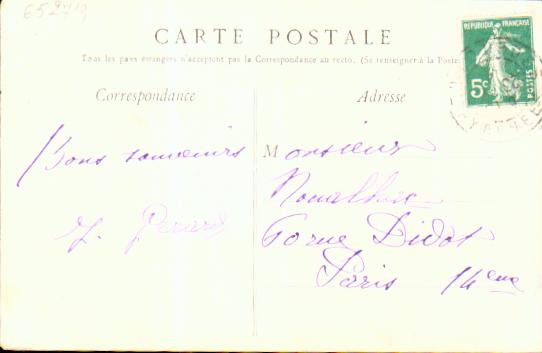 CARTE POSTALE
Tous les pays étrangers n'acceptent pas la Correspondance au recto. (Se renseigner à la Poste.
Correspondance
Adresse
RÉPUBLIQUE FRANÇAISE
5c
POSTES
Bons souvenirs
Monsieur
rue Didot
Paris 14eme